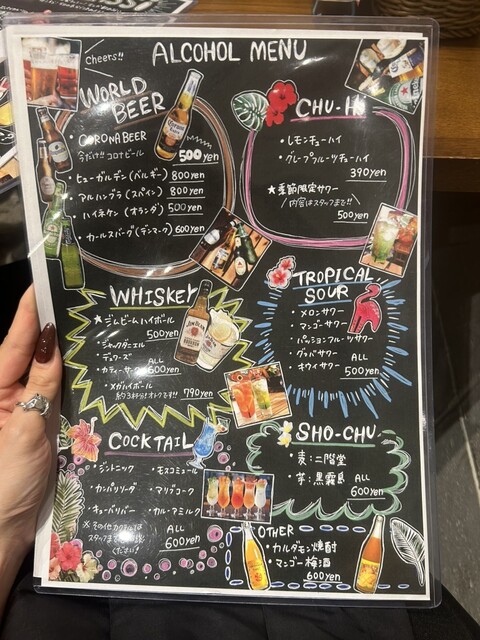 Cheers!!
ALCOHOL MENU
WORLD
BEER
CORONA BEER
今だけ!! コロナビール 500yen
・ヒューガルデン(ベルギー) 800yen
・アルハンブラ(スペイン) 800yen
・ハイネケン(オランダ) 500yen
・カールスバーグ(デンマーク) 600yen
CHU-HI
・レモンチューハイ
・グレープフルーツチューハイ
390yen
★季節限定サワー
内容はスタッフまで!!
500yen
WHISKEY
★ジムビームハイボール
500yen
・ジャックダニエル
・デュワーズ ALL
・カティーサーク 600yen
・メガハイボール
約3杯分!オトクです!! 790yen
TROPICAL
SOUR
・メロンサワー
・マンゴーサワー
・パッションフルーツサワー
・グァバサワー ALL
・キウイサワー 500yen
COCKTAIL
・ジントニック ・モスコミュール
・カンパリソーダ ・マリブコーク
・キューバリバー ・カルーアミルク
※その他カクテルは
スタッフまで
ください! ALL
600yen
SHO-CHU
・麦:二階堂
・芋:黒霧島 ALL
600yen
OTHER
・カルダモン焼酎
・マンゴー梅酒
600yen